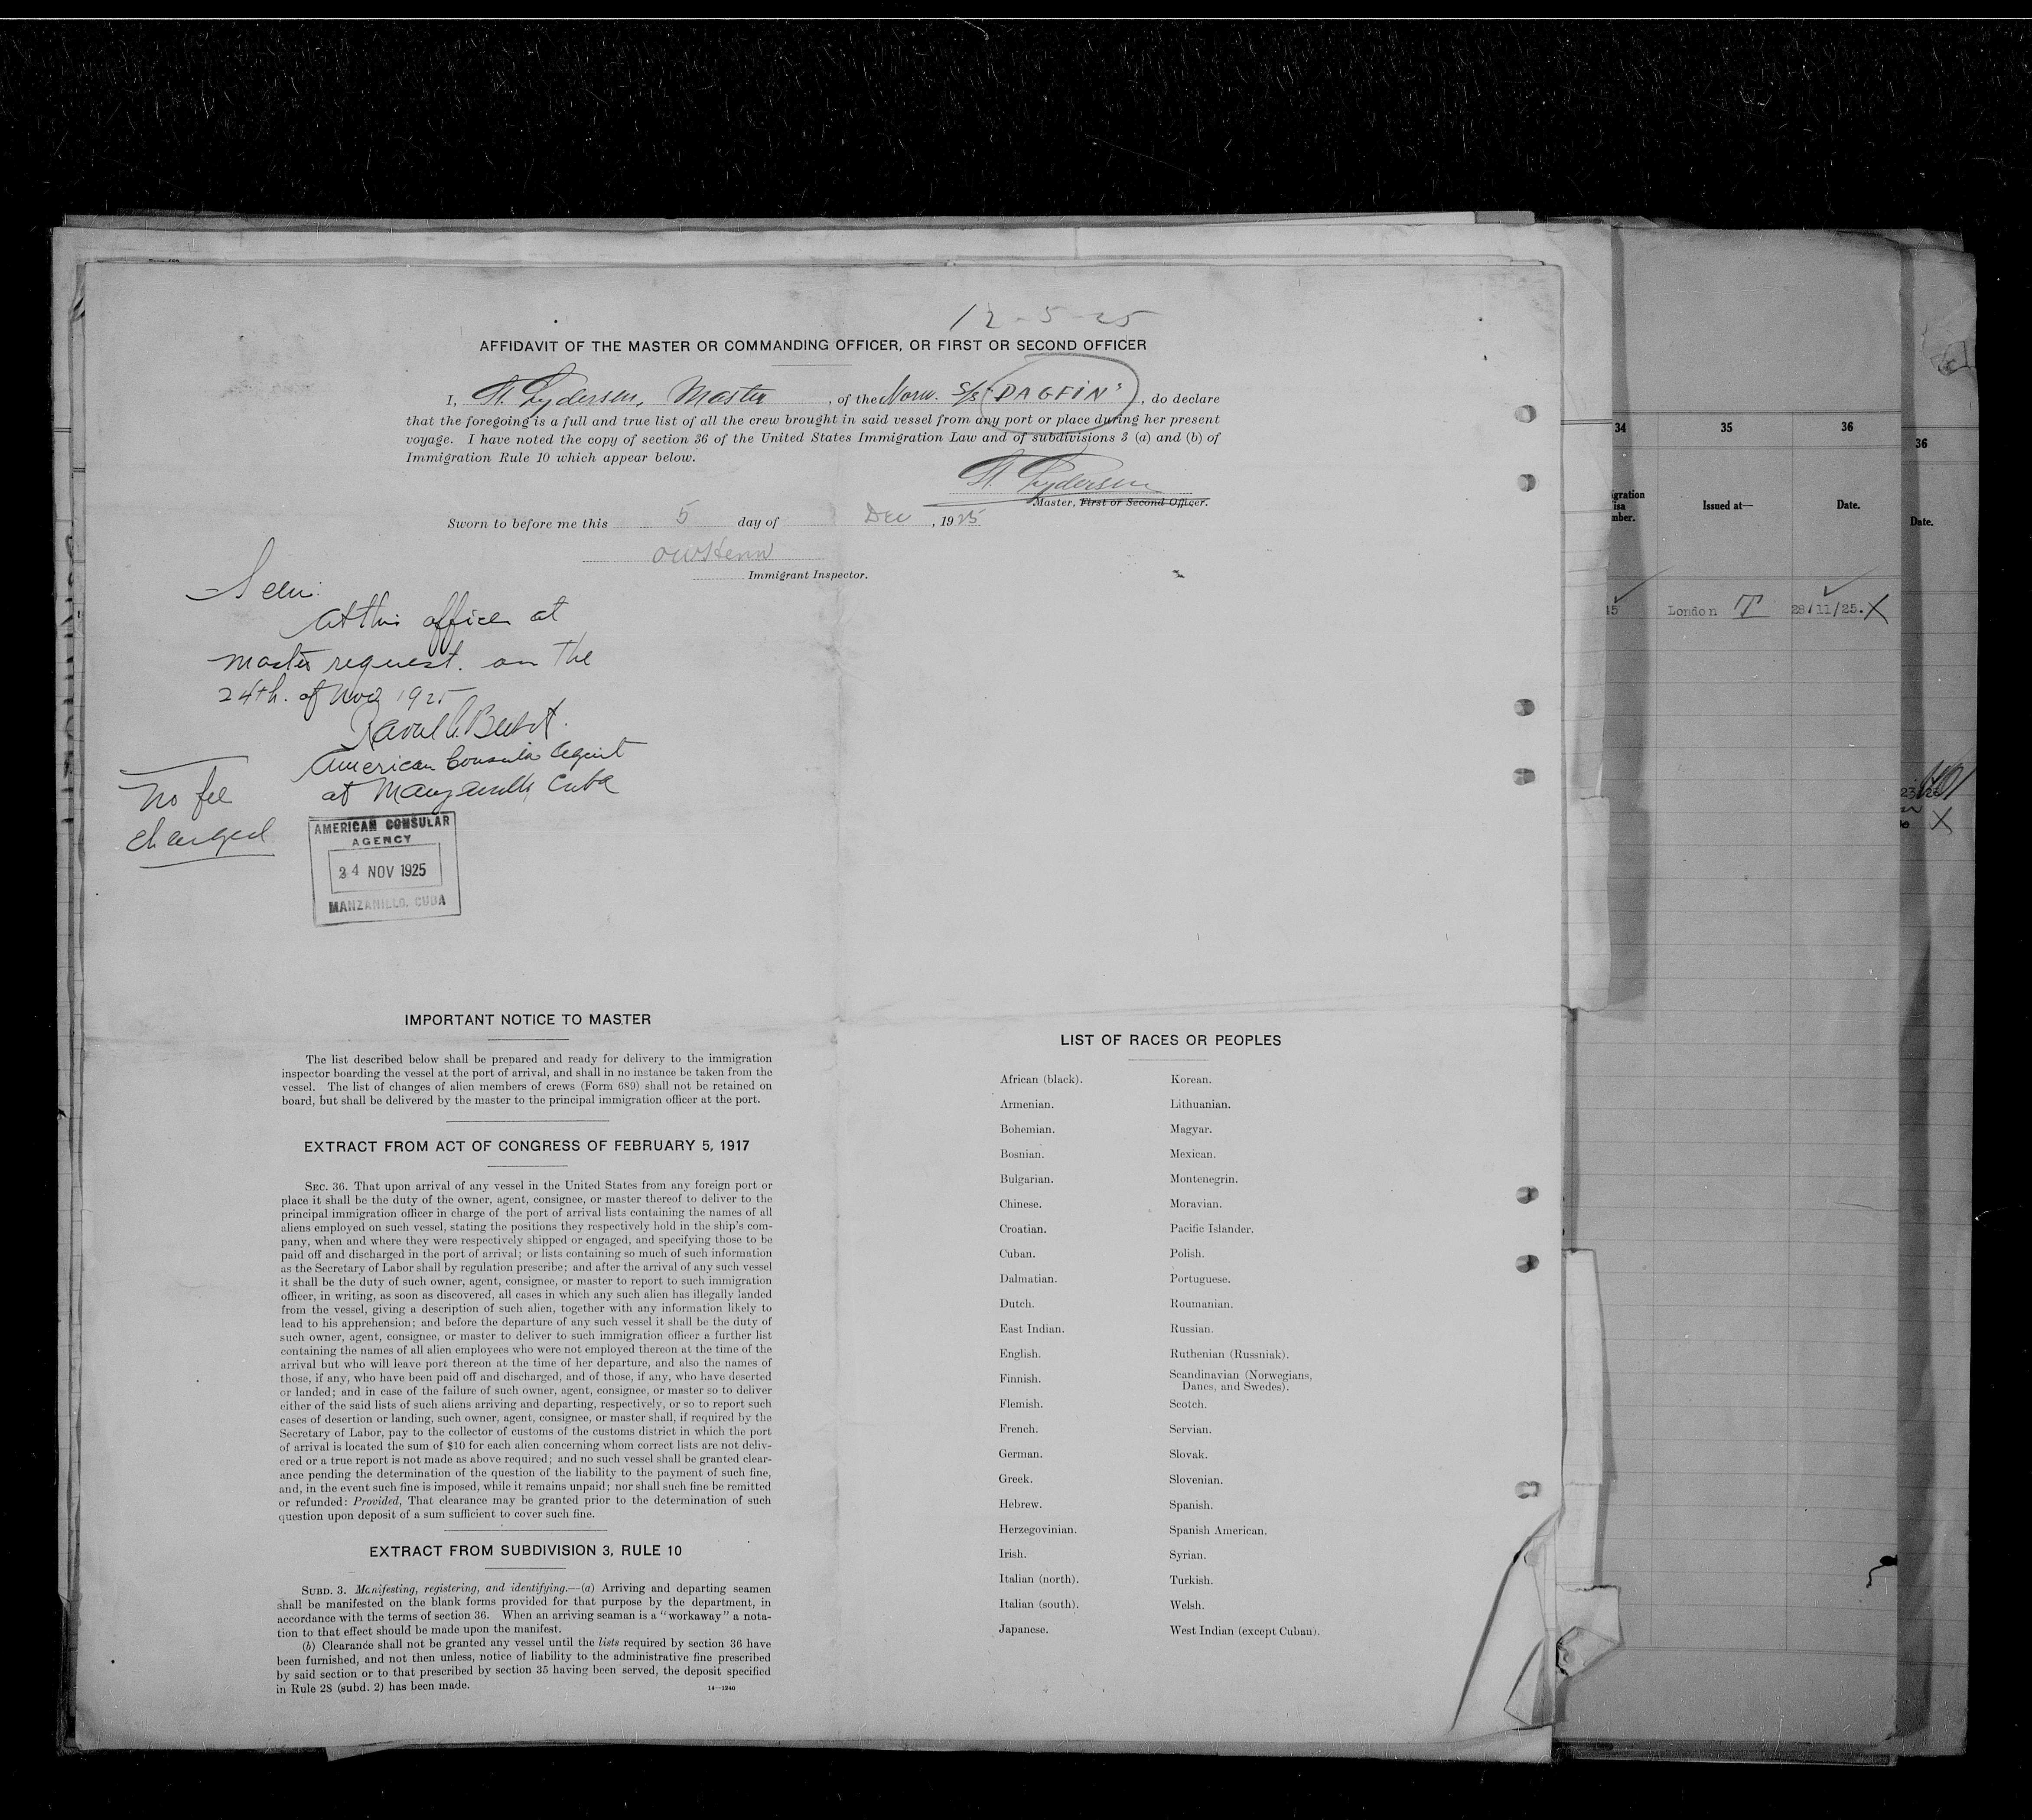 12-5-25
AFFIDAVIT OF THE MASTER OR COMMANDING OFFICER, OR FIRST OR SECOND OFFICER
I, Master, of the Norw. S/S "DAGFIN", do declare
that the foregoing is a full and true list of all the crew brought in said vessel from any port or place during her present
voyage. I have noted the copy of section 36 of the United States Immigration Law and of subdivisions 3 (a) and (b) of
Immigration Rule 10 which appear below.
Master, First or Second Officer.
Sworn to before me this 5 day of Dec, 1925
Immigrant Inspector.
Seen:
At this office at
master request. on the
24th. of Nov 1925
American Consular Agent
at Manzanillo, Cuba
No fee
charged
AMERICAN CONSULAR
AGENCY
24 NOV 1925
MANZANILLO, CUBA
IMPORTANT NOTICE TO MASTER
The list described below shall be prepared and ready for delivery to the immigration
inspector boarding the vessel at the port of arrival, and shall in no instance be taken from the
vessel. The list of changes of alien members of crews (Form 689) shall not be retained on
board, but shall be delivered by the master to the principal immigration officer at the port.
EXTRACT FROM ACT OF CONGRESS OF FEBRUARY 5, 1917
SEC. 36. That upon arrival of any vessel in the United States from any foreign port or
place it shall be the duty of the owner, agent, consignee, or master thereof to deliver to the
principal immigration officer in charge of the port of arrival lists containing the names of all
aliens employed on such vessel, stating the positions they respectively hold in the ship's com-
pany, when and where they were respectively shipped or engaged, and specifying those to be
paid off and discharged in the port of arrival; or lists containing so much of such information
as the Secretary of Labor shall by regulation prescribe; and after the arrival of any such vessel
it shall be the duty of such owner, agent, consignee, or master to report to such immigration
officer, in writing, as soon as discovered, all cases in which any such alien has illegally landed
from the vessel, giving a description of such alien, together with any information likely to
lead to his apprehension; and before the departure of any such vessel it shall be the duty of
such owner, agent, consignee, or master to deliver to such immigration officer a further list
containing the names of all alien employees who were not employed thereon at the time of the
arrival but who will leave port thereon at the time of her departure, and also the names of
those, if any, who have been paid off and discharged, and of those, if any, who have deserted
or landed; and in case of the failure of such owner, agent, consignee, or master so to deliver
either of the said lists of such aliens arriving and departing, respectively, or so to report such
cases of desertion or landing, such owner, agent, consignee, or master shall, if required by the
Secretary of Labor, pay to the collector of customs of the customs district in which the port
of arrival is located the sum of $10 for each alien concerning whom correct lists are not deliv-
ered or a true report is not made as above required; and no such vessel shall be granted clear-
ance pending the determination of the question of the liability to the payment of such fine,
and, in the event such fine is imposed, while it remains unpaid; nor shall such fine be remitted
or refunded: Provided, That clearance may be granted prior to the determination of such
question upon deposit of a sum sufficient to cover such fine.
EXTRACT FROM SUBDIVISION 3, RULE 10
SUBD. 3. Manifesting, registering, and identifying.—(a) Arriving and departing seamen
shall be manifested on the blank forms provided for that purpose by the department, in
accordance with the terms of section 36. When an arriving seaman is a "workaway" a nota-
tion to that effect should be made upon the manifest.
(b) Clearance shall not be granted any vessel until the lists required by section 36 have
been furnished, and not then unless, notice of liability to the administrative fine prescribed
by said section or to that prescribed by section 35 having been served, the deposit specified
in Rule 28 (subd. 2) has been made.
14—1240
LIST OF RACES OR PEOPLES
African (black). Korean.
Armenian. Lithuanian.
Bohemian. Magyar.
Bosnian. Mexican.
Bulgarian. Montenegrin.
Chinese. Moravian.
Croatian. Pacific Islander.
Cuban. Polish.
Dalmatian. Portuguese.
Dutch. Roumanian.
East Indian. Russian.
English. Ruthenian (Russniak).
Finnish. Scandinavian (Norwegians,
Danes, and Swedes).
Flemish. Scotch.
French. Servian.
German. Slovak.
Greek. Slovenian.
Hebrew. Spanish.
Herzegovinian. Spanish American.
Irish. Syrian.
Italian (north). Turkish.
Italian (south). Welsh.
Japanese. West Indian (except Cuban).
34 35 36
Issued at— Date.
15 London T 28/11/25. X
36
Date.
X